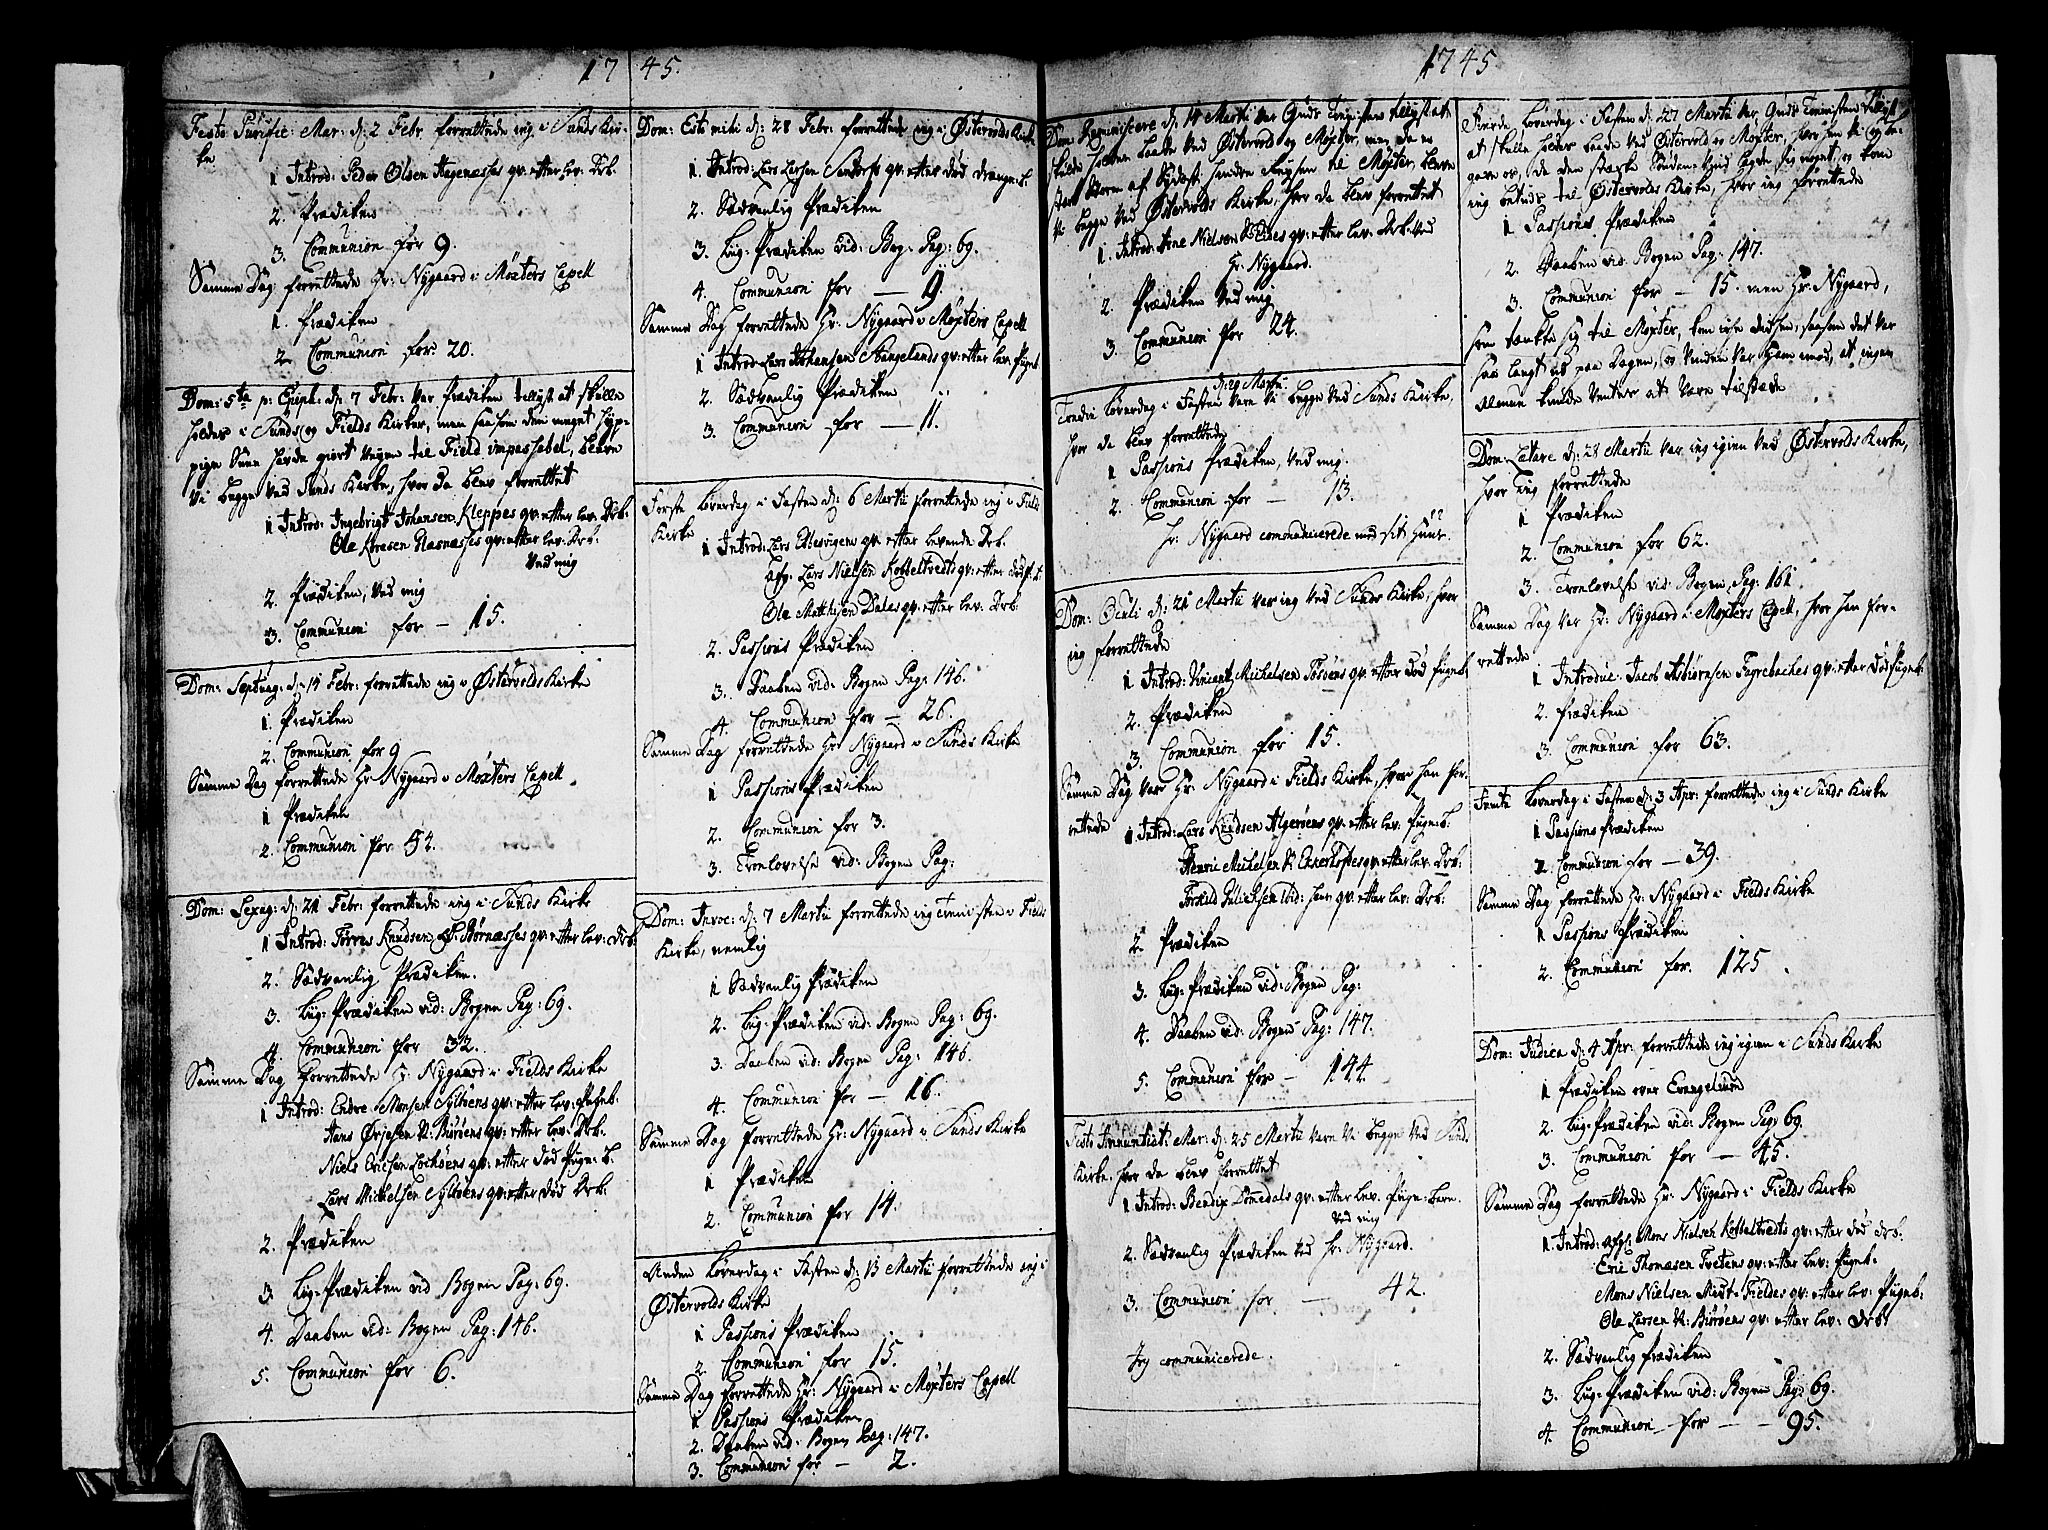 1745.
Festo Purific: Mar: d: 2 Febr forrettede ieg i Sunds Kir-
ke
1 Introd: Peder Olsen Hagenæsses qv: efter lev: Drb.
2. Prædiken
3. Communion for 9.
Samme Dag forrettede Hr: Nygaard i Møxters Capell
1. Prædiken
2. Communion for 20.
Dom: 5ta p: Epiph: d: 7 Febr: var Prædiken tillyst at skulle
holdes i Sunds og Fields Kirker, men saasom den meget hyp-
pige Snee havde giort veyen til Field impassabel, bleve
vi begge ved Sunds Kirke, hvor da blev forrettet
1 Introd: Ingebrigt Johansen Kleppes qv: efter lev: Drb.
Ole Ræsnæsses qv: efter lev: Drb.
ved mig
2. Prædiken, ved mig
3. Communion for – 15.
Dom: Septuag: d: 14 Febr: forrettede ieg i Østervolds Kirke
1. Prædiken
2. Communion for 9
Samme Dag forrettede Hr Nygaard i Møxters Capell
1 Prædiken
2. Communion for 52.
Dom: Sexag: d: 21 Febr: forrettede ieg i Sunds Kirke
1 Introd: Torres Knudsen qv: efter lev: Drb:
2. Sædvanlig Prædiken.
3. Lug: Prædiken vid: Bogen Pag: 69.
4. Communion for 32.
Samme Dag forrettede Hr: Nygaard i Fields Kirke
1 Introd: Endre Monsen Syltøens qv: efter lev: Pigeb:
Hans qv: efter lev: Drb.
Niels Ericsen Lochøens qv: efter død Pige: b.
Lars Michelsen Syltøens qv: efter død Drb:
2. Prædiken
3 Lug: Prædiken vid Bogen Pag: 69.
4. Daaben vid: Bogen Pag: 146.
5. Communion for 6.
Dom: Esto mihi d: 28 Febr: forrettede ieg i Østervolds Kirke
1. Introd: Lars Larsen Sandtorfs qv: efter død Drenge: b.
2. Sædvanlig Prædiken
3. Lug: Prædiken vid: Bog: Pag: 69.
4. Communion for — 9.
Samme Dag forrettede Hr: Nygaard i Møxters Capell
1 Introd: Lars Johansen Stangelands qv: efter lev: Pigeb
2. Sædvanlig Prædiken
3. Communion for — 11.
Første Løverdag i Fasten d: 6 Martii forrettede ieg i Field
Kirke
1 Introd: Lars Ebbesvigens qv: efter levende Drb.
Afg: Lars Nielsen Kobbeltvedts qv: efter
Ole Matthisen Dales qv: efter lev: Drb:
2. Passions Prædiken
3. Daaben vid: Bogen Pag: 146.
4. Communion for — 26.
Samme Dag forrettede Hr: Nygaard i Sunds Kirke
1 Passions Prædiken
2. Communion for 3.
3. Troelovelse vid: Bogen Pag:
Dom: Invoc: d: 7 Martii forrettede ieg Tienisten i Fields
Kirke, nemlig
1 Sædvanlig Prædiken
2. Lug: Prædiken vid: Bogen Pag: 69.
3. Daaben vid: Bogen Pag: 146.
4. Communion for — 16.
Samme Dag forrettede Hr: Nygaard i Sunds Kirke
1 Prædiken
2. Communion for 14.
Anden Løverdag i Fasten d: 13 Martii forrettede ieg i
Østervolds Kirke
1 Passions Prædiken
2 Communion for 15.
Samme Dag forrettede Hr: Nygaard i Møxters Capell
1 Passions Prædiken
2. Daaben vid: Bogen Pag: 147.
3. Communion for – 2.
1745
Dom: Reminiscere d: 14 Martii var Guds Tienisten tillyst at
skulde holdes baade ved Østervold og Møxter, men da en
stærk Storm af hindre Reysen til Møxter, bleve
vi begge ved Østervolds Kirke, hvor da blev forrettet
1. Introd: Arne Nielsen qv: efter lev: Drb: ved
Hr: Nygaard.
2. Prædiken ved mig
3. Communion for 24.
d: 20 Martii
Tredie Løverdag i Fasten vare vi begge ved Sunds Kirke,
hvor da blev forrettede
1 Passions Prædiken, ved mig.
2. Communion for – 13.
Hr: Nygaard communicerede med sit Huus.
Dom: Oculi d: 21 Martii var ieg ved Sunds Kirke, hvor
ieg forrettede
1 Introd: Vincent Michelsen Toföens qv: efter død Pigeb.
2. Prædiken
3. Communion for 15.
Samme Dag var Hr: Nygaard i Fields Kirke, hvor han for-
rettede
1. Introd: Lars Knudsen Algerøens qv: efter lev: Pige: b.
Henric Michelsen qv: efter lev: Drb:
qv: efter lev: Drb:
2. Prædiken
3. Lug: Prædiken vid: Bogen Pag:
4. Daaben vid: Bogen Pag: 147.
5. Communion for – 144
Festo Annuntiat: Mar: d: 25 Martii vare vi begge ved Sunds
Kirke, hvor da blev forrettet
1 Introd: Bendix Tømedals qv: efter lev: Pige: barn.
ved mig
2. Sædvanlig Prædiken ved Hr: Nygaard.
3. Communion for — 42.
Jeg communicerede.
Fierde Løverdag i Fasten d: 27 Martii var Guds Tienisten tillyst
at skulle holdes baade ved Østervold og Møxter, hvor hen vi og be-
gave os, da den stærke Synden Vind lagde sig noget, og kom
ieg betids til Østervolds Kirke, hvor ieg forrettede
1 Passions Prædiken
2. Daaben vid: Bogen Pag: 147.
3. Communion for – 15. men Hr: Nygaard,
som tænkte sig til Møxter, kom ikke saasom det var
saa langt ud paa Dagen, og Vinden var ham imod, at ingen
Almue kunde ventes at være tilstæde
Dom: Lætare d: 28 Martii var ieg igien ved Østervolds Kirke,
hvor ieg forrettede
1 Prædiken
2. Communion for 62.
3. Troelovelse vid: Bogen Pag: 161
Samme Dag var Hr: Nygaard i Møxters Capell, hvor han for-
rettede
1 Introduc: Jacob Asbiørnsen Fagrebackes qv: efter død Pigeb:
2. Prædiken
3. Communion for 63.
Femte Løverdag i Fasten d: 3 Apr: forrettede ieg i Sunds Kirke
1 Passions Prædiken
2. Communion for — 39.
Samme Dag forrettede Hr: Nygaard i Fields Kirke
1 Passions Prædiken
2. Communion for. 125
Dom: Judica d: 4 Apr: forrettede ieg igien i Sunds Kirke
1 Prædiken over Evangelium
2. Lug: Prædiken vid: Bogen Pag: 69.
3. Communion for — 45.
Samme Dag forrettede Hr: Nygaard i Fields Kirke
1. Introd: afg: Mons Nielsen Kobbeltvedts qv: efter død Drb:
Eric Thomæsen Tvetens qv: efter lev: Pigeb.
Mons Nielsen Fieldes qv: efter lev: Pigeb:
Ole Larsen qv: efter lev: Drb:
2. Sædvanlig Prædiken
3. Lug: Prædiken vid: Bogen Pag: 69.
4. Communion for — 95.